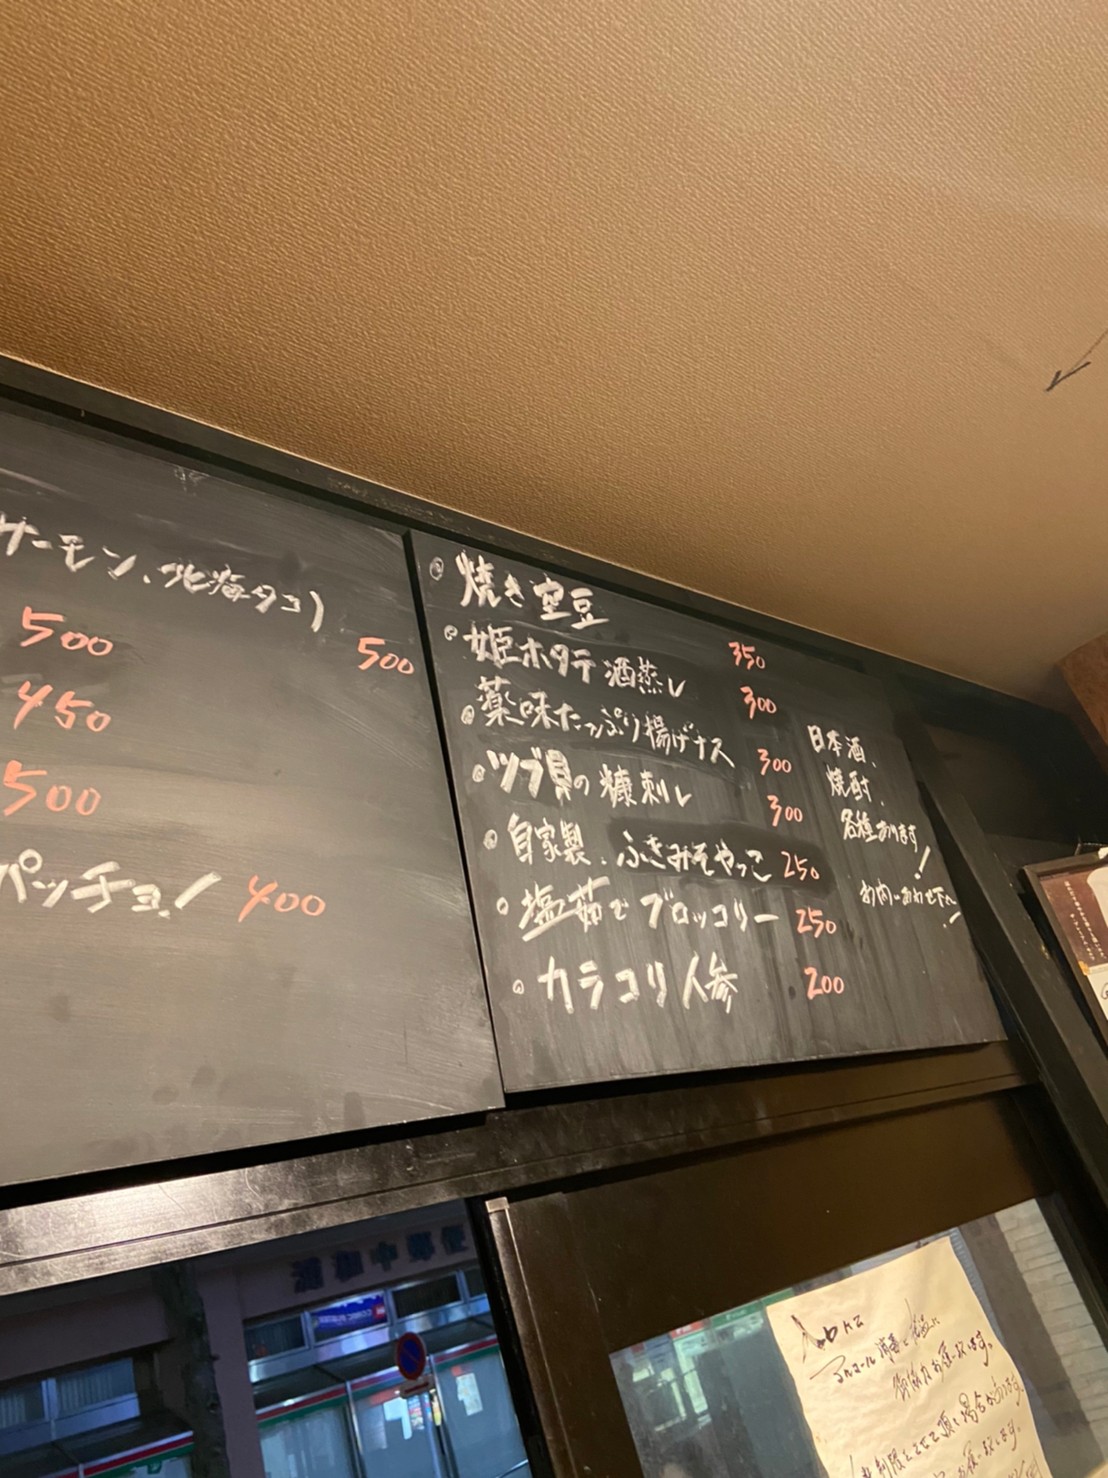 サーモン、北海タコ)
500
500
450
500
パッチョ! 400
焼き空豆 350
姫ホタテ酒蒸し 300
薬味たっぷり揚げナス 300
ツブ貝の糠刺し 300
自家製、ふきみそやっこ 250
塩茹でブロッコリー 250
カラコリ人参 200
日本酒、
焼酎、
各種あります!
お問いあわせ下へ!
浦和中郵便
アルコール消毒と